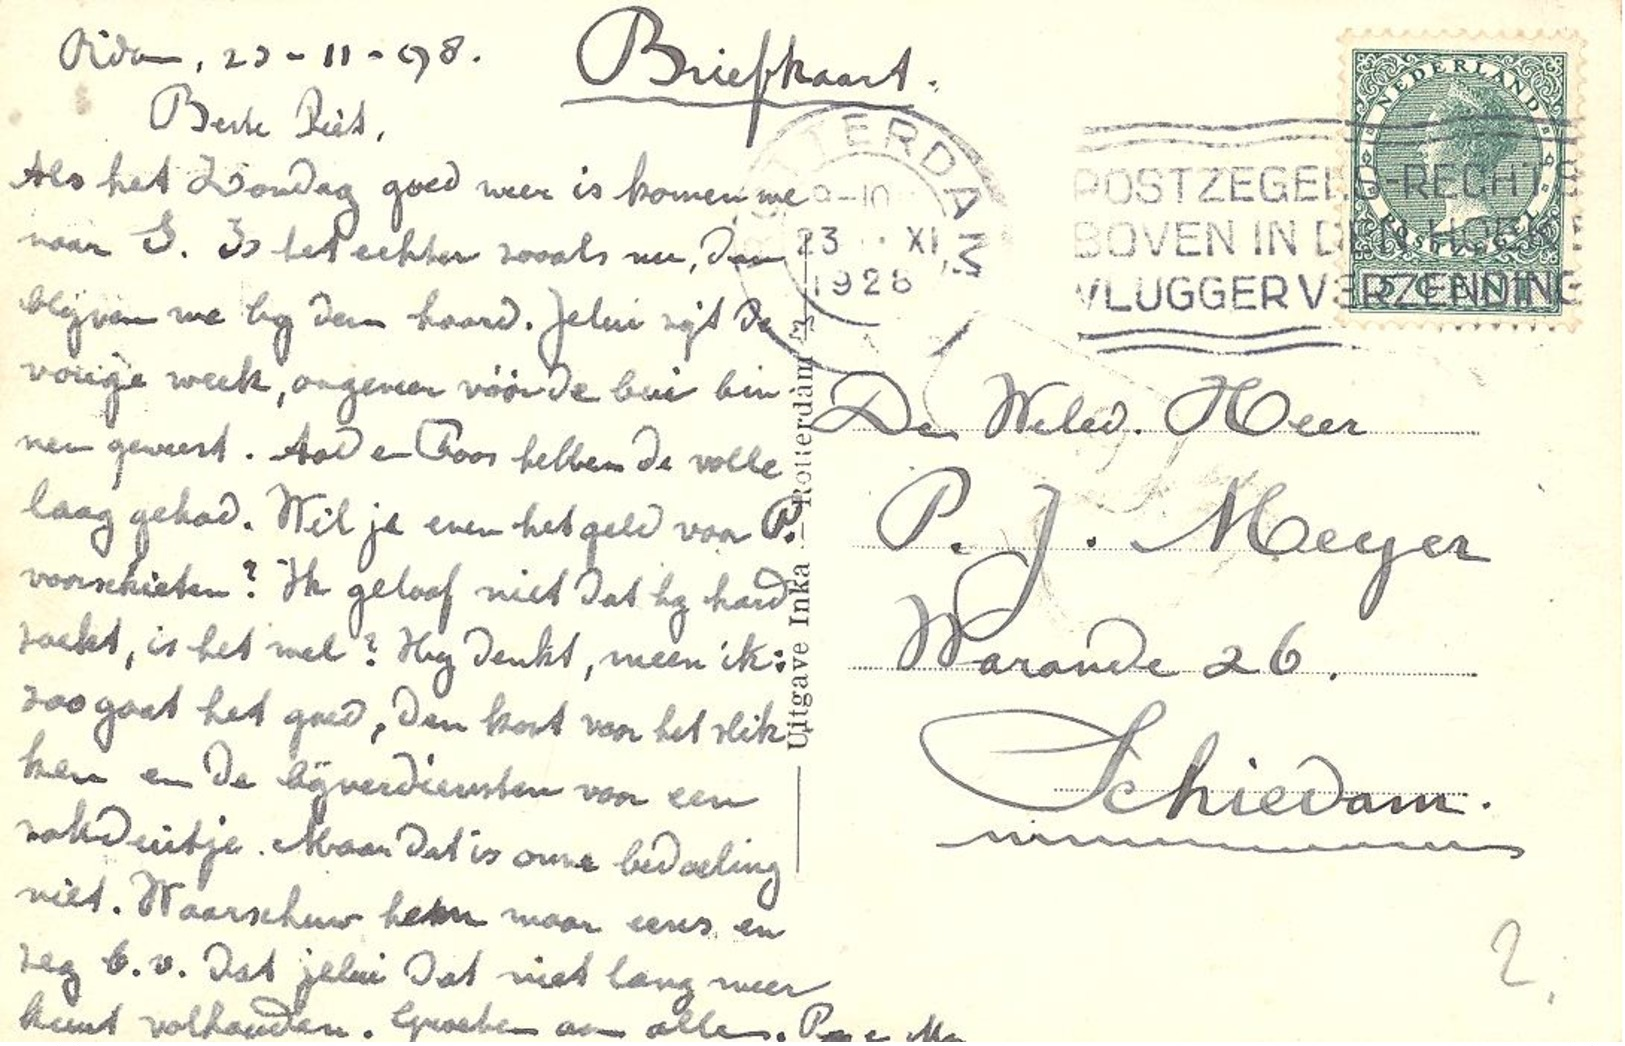 R'dam, 23-11-'28.
Briefkaart.
Beste Piet,
Als het Zondag goed weer is komen we
naar S. Is het echter zooals nu, dan
blijven we bij den haard. Jelui zijt de
vorige week, ongeveer vóór de bui bin
nen geweest. Aad en Toos hebben de volle
laag gehad. Wil je even het geld voor P.
voorschieten? Ik geloof niet dat hij hard
zoekt, is het wel? Hij denkt, meen ik:
zoo gaat het goed, den kost voor het slik
ken en de bijverdiensten voor een
zakduitje. Maar dat is onze bedoeling
niet. Waarschuw hem maar eens en
zeg b.v. dat jelui dat niet lang meer
kunt volhouden. Groeten aan allen. Pa e Ma
ROTTERDAM
9-10
23 XI
1928
POSTZEGEL-RECHTS
BOVEN IN DEN HOEK
VLUGGER VERZENDING
NEDERLAND
POSTZEGEL
5 CENT
Uitgave Inka - Rotterdam
Den Weled. Heer
P. J. Meyer
Warande 26.
Schiedam.
2.